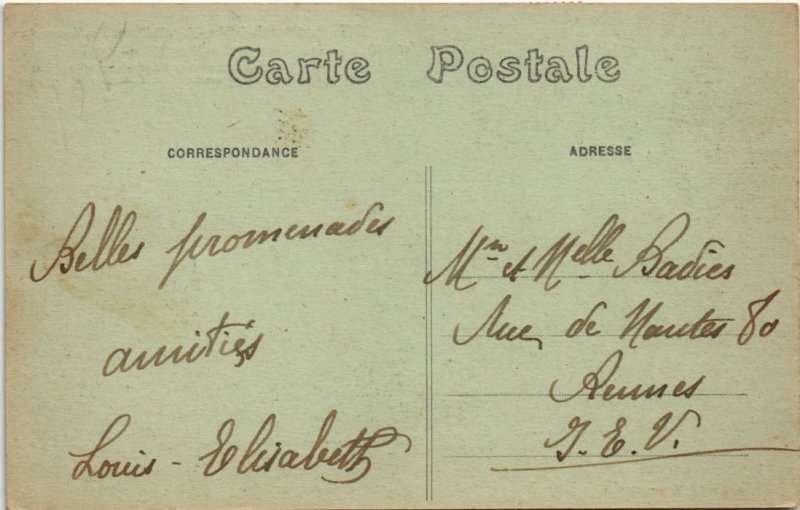 Carte Postale
CORRESPONDANCE
Belles promenades
amitiés
Louis - Elisabeth
ADRESSE
Mm et Melle Badies
Rue de Nantes 80
Rennes
I. E. V.